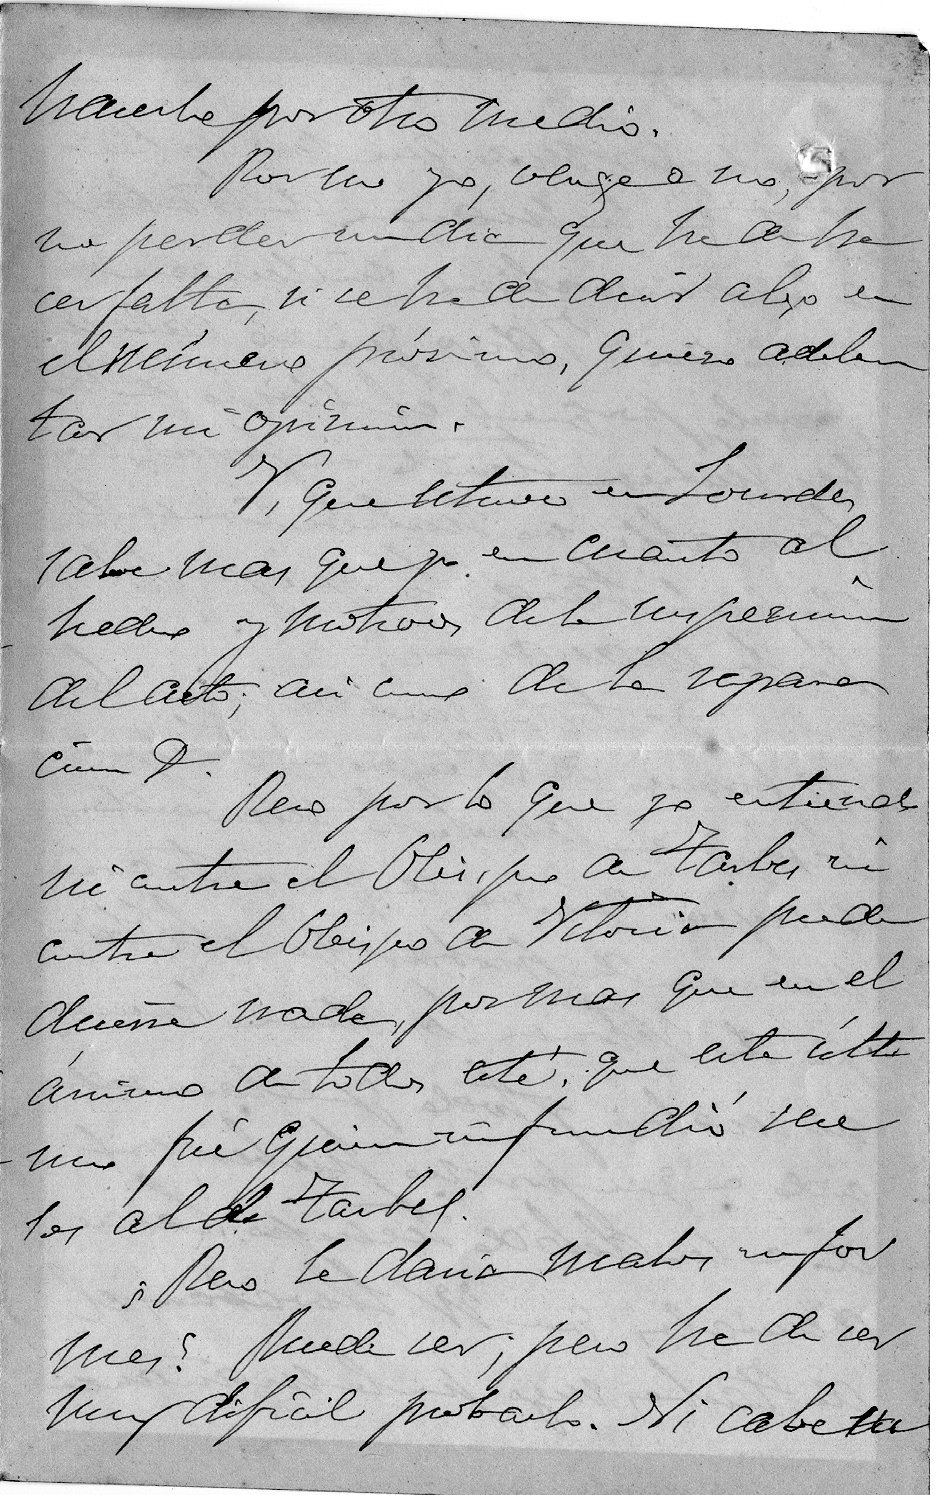 hacerlo por otro medio.
Por no yo, venga o no, por
no perder un dia que ha de ha
cer falta, si se ha de decir algo en
el número próximo, quiero adelan
tar mi opinion.
V, que estuvo en Lourdes,
sabe mas que yo en cuanto al
hecho y motivos de la supresion
del acto; asi como de la repara
cion &.
Pero por lo que yo entiendo
ni contra el Obispo de Tarbes ni
contra el Obispo de Vitoria puede
decirse nada, por mas que en el
ánimo de todos esté, que este últi
mo fué quien infundió rece
los al de Tarbes.
¿Pero le daria malos infor
mes? Puede ser; pero ha de ser
muy dificil probarlo. Ni cabe